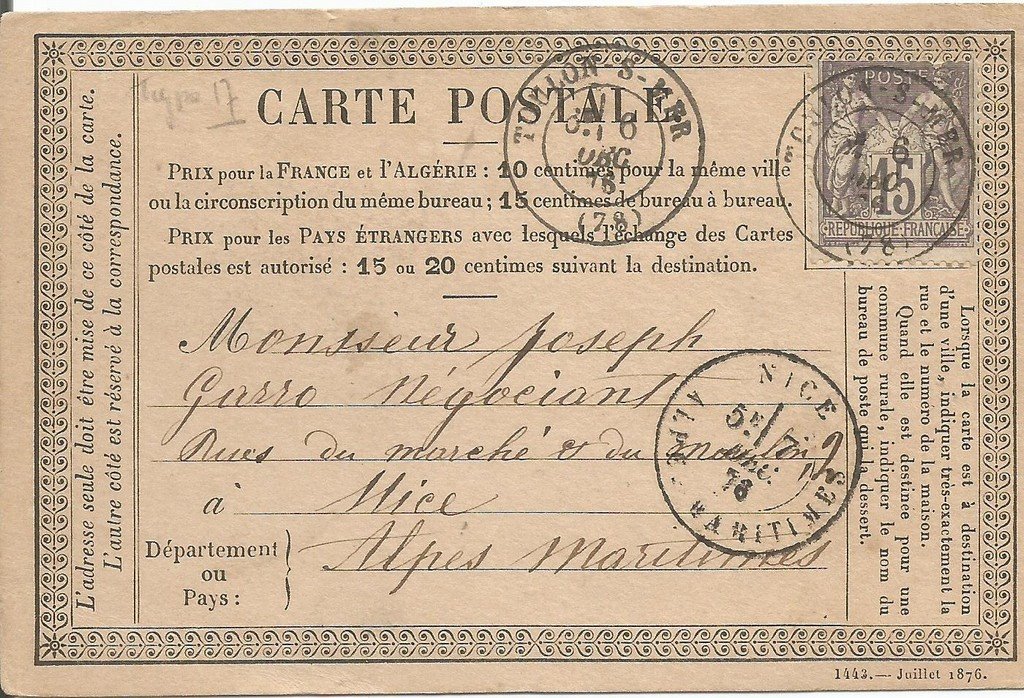 type 17
CARTE POSTALE
PRIX pour la FRANCE et l'ALGÉRIE : 10 centimes pour la même ville
ou la circonscription du même bureau ; 15 centimes de bureau à bureau.
PRIX pour les PAYS ÉTRANGERS avec lesquels l'échange des Cartes
postales est autorisé : 15 ou 20 centimes suivant la destination.
TOULON-S-MER
6
DEC
76
(78)
POSTE
15
REPUBLIQUE FRANÇAISE
TOULON-S-MER
6
DEC
(78)
L'adresse seule doit être mise de ce côté de la carte.
L'autre côté est réservé à la correspondance.
Monsieur Joseph
Garro Négociant
Rues du marché & du
à Nice
Département
ou
Pays :
Alpes Maritimes
NICE
5E
7
DEC
76
ALPES MARITIMES
Lorsque la carte est à destination
d'une ville, indiquer très-exactement la
rue et le numéro de la maison.
Quand elle est destinée pour une
commune rurale, indiquer le nom du
bureau de poste qui la dessert.
1443.— Juillet 1876.